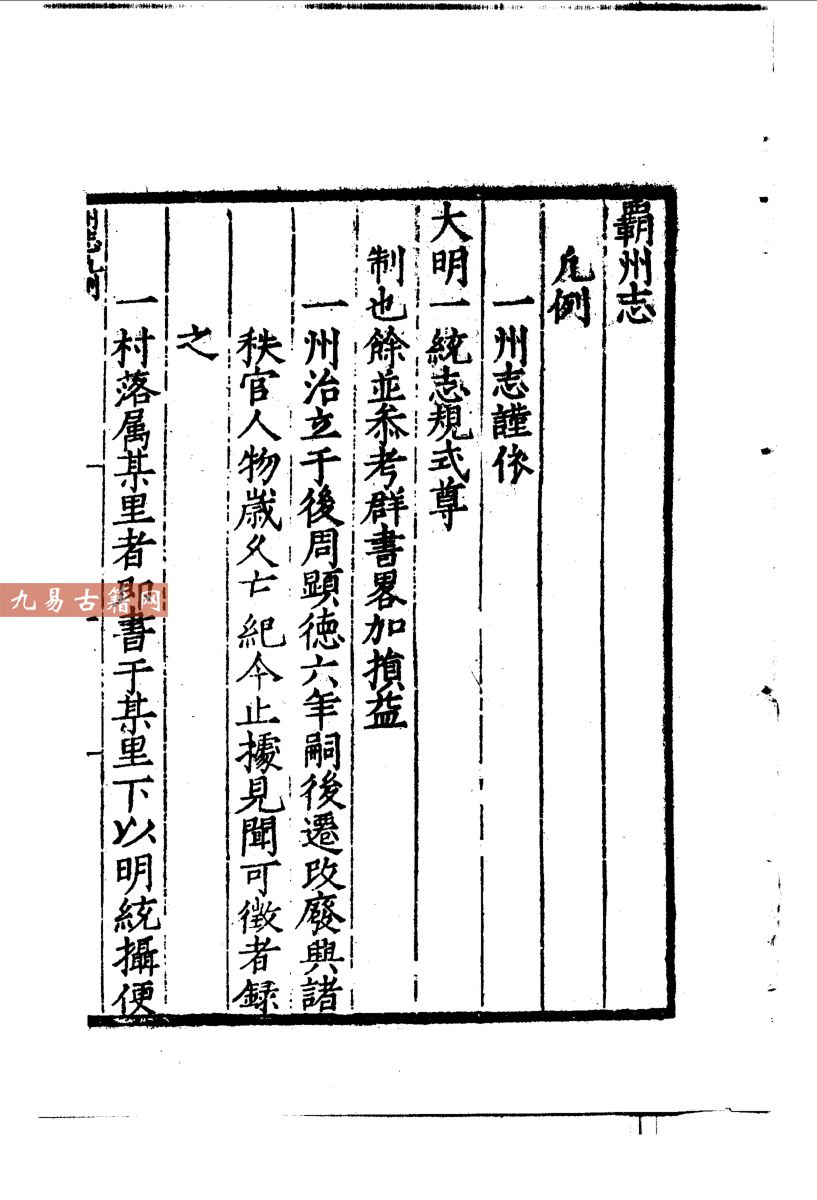 霸州志
凡例
一州志謹依
大明一統志規式尊
制也餘並叅考群書畧加損益
一州治立于後周顯德六年嗣後遷改廢興諸
秩官人物歲久亡紀今止據見聞可徵者録
之
一村落属某里者即書于某里下以明統攝便
州志凡例
九易古籍网